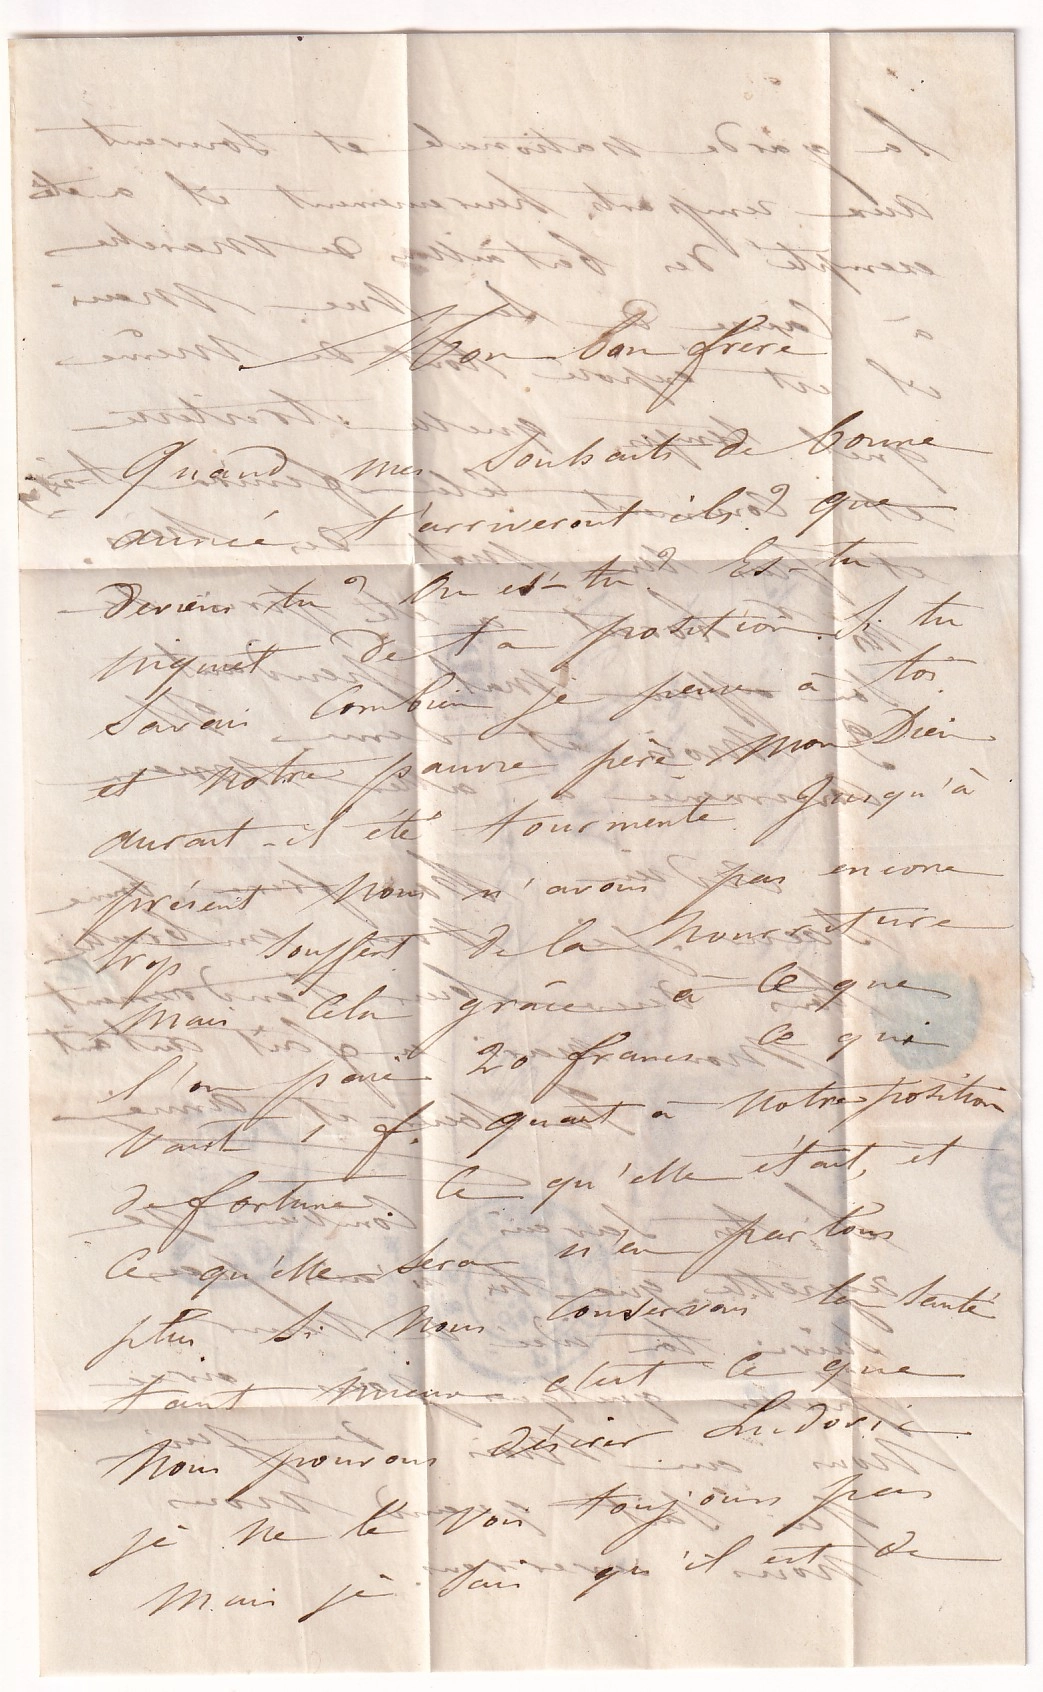 Mon bon frère
Quand mes souhaits de bonne
année t'arriveront ils? que
deviens tu? Ou es-tu? Es-tu
inquiet de ta position. Si tu
savais combien je pense à toi
et notre pauvre père mon Dieu
aurait-il été tourmenté. Jusqu'à
présent nous n'avons pas encore
trop souffert de la nourriture
mais cela grâce à ce que
l'on paie 20 francs ce qui
vaut 1 f. quant à notre position
de fortune ce qu'elle était, et
ce qu'elle sera n'en parlons
plus si nous conservons la santé
tant mieux c'est ce que
nous pouvons désirer Ludovic
je ne le vois toujours pas
mais je sais qu'il est de